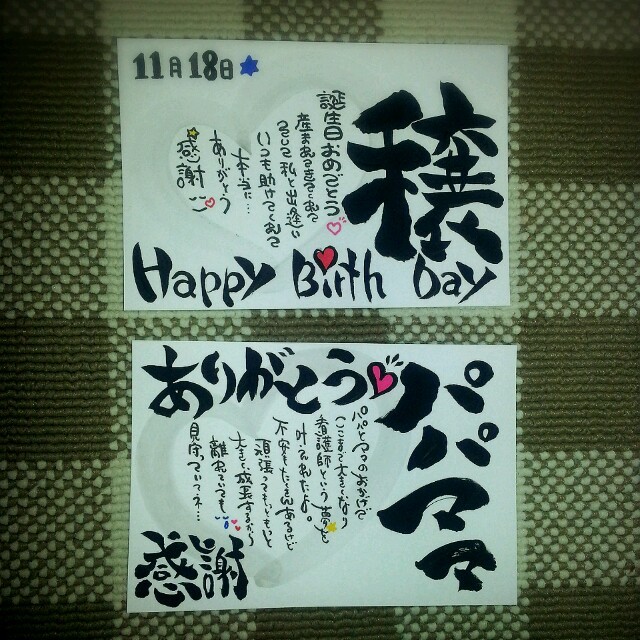 11月18日
穣
誕生日おめでとう
産まれてきてくれて
そして私と出逢い
いつも助けてくれて
本当に…
ありがとう
感謝
Happy Birth Day
ありがとう
パパ
ママ
パパとママのおかげで
ここまで大きくなり
看護師という夢
不安
頑張ってもっともっと
大きく成長するから
離れていても
見守っていてネ…
感謝